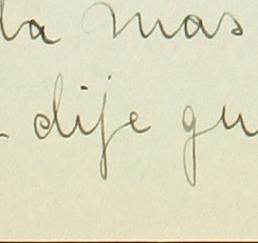 la mas
dije qu